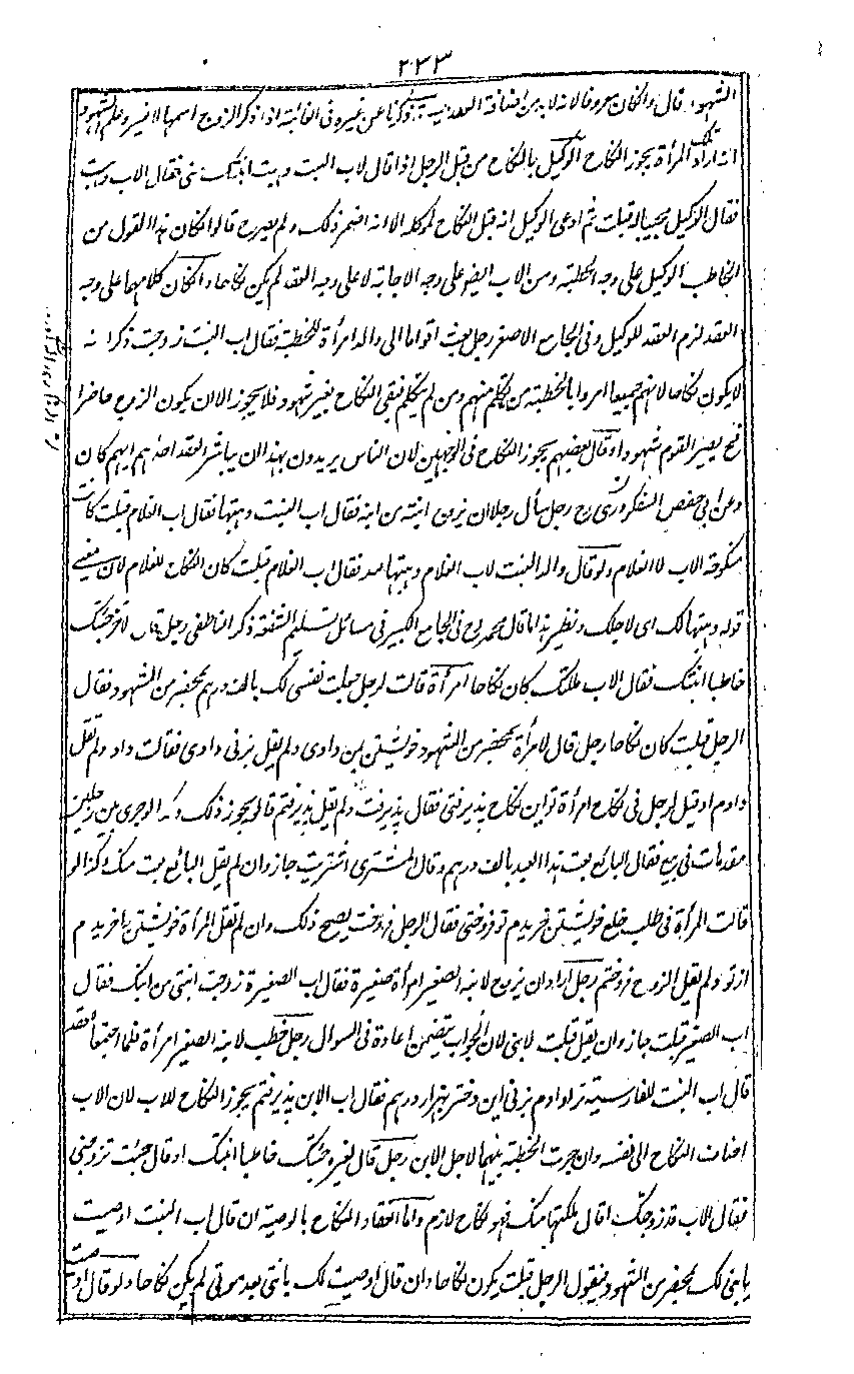 ٢٣٣
الشهود قال وان كان معروفا لانه لابد من اضافة العقد اليه ذكرنا عن غيره فى الغائبة اذا ذكر الزوج اسمها لا غير وعلم الشهود
انه اراد تلك المرأة يجوز النكاح الوكيل بالنكاح من قبل الرجل اذا قال لاب البنت وهبت ابنتك منى فقال الاب وهبت
فقال الوكيل مجيبا له قبلت ثم ادعى الوكيل انه قبل النكاح لموكله الا انه اضمر ذلك ولم يصرح قالوا ان كان هذا القول من
الخاطب الوكيل على وجه الخطبة ومن الاب ايضو على وجه الاجابة لا على وجه العقد لم يكن نكاحا وان كان كلامهما على وجه
العقد لزم العقد للوكيل وفى الجامع الاصغر رجل بعث اقواما الى والد امرأة للخطبة فقال اب البنت زوجت ذكر انه
لا يكون نكاحا لانهم جميعا امروا بالخطبة من تكلم منهم ومن لم يتكلم فبقى النكاح بغير شهود فلا يجوز الا ان يكون الزوج حاضرا
فح يصير القوم شهودا وقال بعضهم يجوز النكاح فى الوجهين لان الناس يريدون بهذا ان يباشر العقد احدهم ايهم كان
وعن ابى حفص السفكردرى رح رجل سأل رجلا ان يزوج ابنته من ابنه فقال اب البنت وهبتها فقال اب الغلام قبلت كانت
منكوحة الاب لا الغلام ولو قال والد البنت لاب الغلام وهبتها لك فقال اب الغلام قبلت كان النكاح للغلام لان معنى
قوله وهبتها لك اى لاجلك ونظير هذا ما قال محمد رح فى الجامع الكبير فى مسائل تسليم الشفعة ذكر الناطفى رجل قال لآخر جئتك
خاطبا ابنتك فقال الاب ملكتك كان نكاحا امرأة قالت لرجل جعلت نفسى لك بالف درهم بمحضر من الشهود فقال
الرجل قبلت كان نكاحا رجل قال لامرأة بمحضر من الشهود خويشتن بمن دادى ولم يقل بزنى دادى فقالت داد ولم تقل
دادم او قيل لرجل فى نكاح امرأة تو اين نكاح پذيرفتى فقال پذيرفت ولم يقل پذيرفتم قالوا يجوز ذلك وكذا لو جرى بين رجلين
مقدمات فى بيع فقال البائع بعت هذا العبد بالف درهم وقال المشترى اشتريت جاز وان لم يقل البائع بعت منك وكذا لو
قالت المرأة فى طلب خلع خويشتن خريدم تو فروختى فقال الرجل فروخت يصح ذلك وان لم تقل المرأة خويشتن را خريدم
از تو ولم يقل الزوج فروختم رجل اراد ان يزوج لابنه الصغير امرأة صغيرة فقال اب الصغيرة زوجت ابنتى من ابنك فقال
اب الصغير قبلت جاز وان لم يقل قبلت لابنى لان الجواب يتضمن اعادة ما فى السوال رجل خطب لابنه الصغير امرأة فلما اجتمعا للعقد
قال اب البنت بالفارسية ترا دادم بزنى اين دختر بهزار درهم فقال اب الابن پذيرفتم يجوز النكاح للاب لان الاب
اضاف النكاح الى نفسه وان جرت الخطبة بينهما لاجل الابن رجل قال لغيره جئتك خاطبا ابنتك او قال جئت تزوجنى
فقال الاب قد زوجتك او قال ملكتها منك فهو نكاح لازم واما انعقاد النكاح بالوصية ان قال اب البنت اوصيت
بابنتى لك بمحضر من الشهود فيقول الرجل قبلت يكون نكاحا وان قال اوصيت لك بابنتى بعد موتى لم يكن نكاحا ولو قال اوصيت